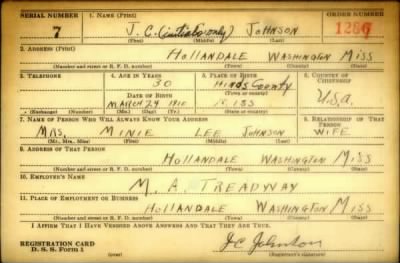 SERIAL NUMBER 1. NAME (Print) ORDER NUMBER
7 J. C. (initials only) JOHNSON 1286
(First) (Middle) (Last)
2. ADDRESS (Print)
HOLLANDALE WASHINGTON MISS
(Number and street or R. F. D. number) (Town) (County) (State)
3. TELEPHONE 4. AGE IN YEARS 5. PLACE OF BIRTH 6. COUNTRY OF CITIZENSHIP
30 Hinds County
DATE OF BIRTH (Town or county) U.S.a.
MARCH 24 1910 MISS
(Exchange) (Number) (Mo.) (Day) (Yr.) (State or country)
7. NAME OF PERSON WHO WILL ALWAYS KNOW YOUR ADDRESS 8. RELATIONSHIP OF THAT PERSON
MRS. MINIE LEE JOHNSON WIFE
(Mr., Mrs., Miss) (First) (Middle) (Last)
9. ADDRESS OF THAT PERSON
HOLLANDALE WASHINGTON MISS
(Number and street or R. F. D. number) (Town) (County) (State)
10. EMPLOYER'S NAME
M. A. TREADWAY
11. PLACE OF EMPLOYMENT OR BUSINESS
HOLLANDALE WASHINGTON MISS
(Number and street or R. F. D. number) (Town) (County) (State)
I AFFIRM THAT I HAVE VERIFIED ABOVE ANSWERS AND THAT THEY ARE TRUE.
REGISTRATION CARD
D. S. S. Form 1 JC Johnson
(over) (Registrant's signature)